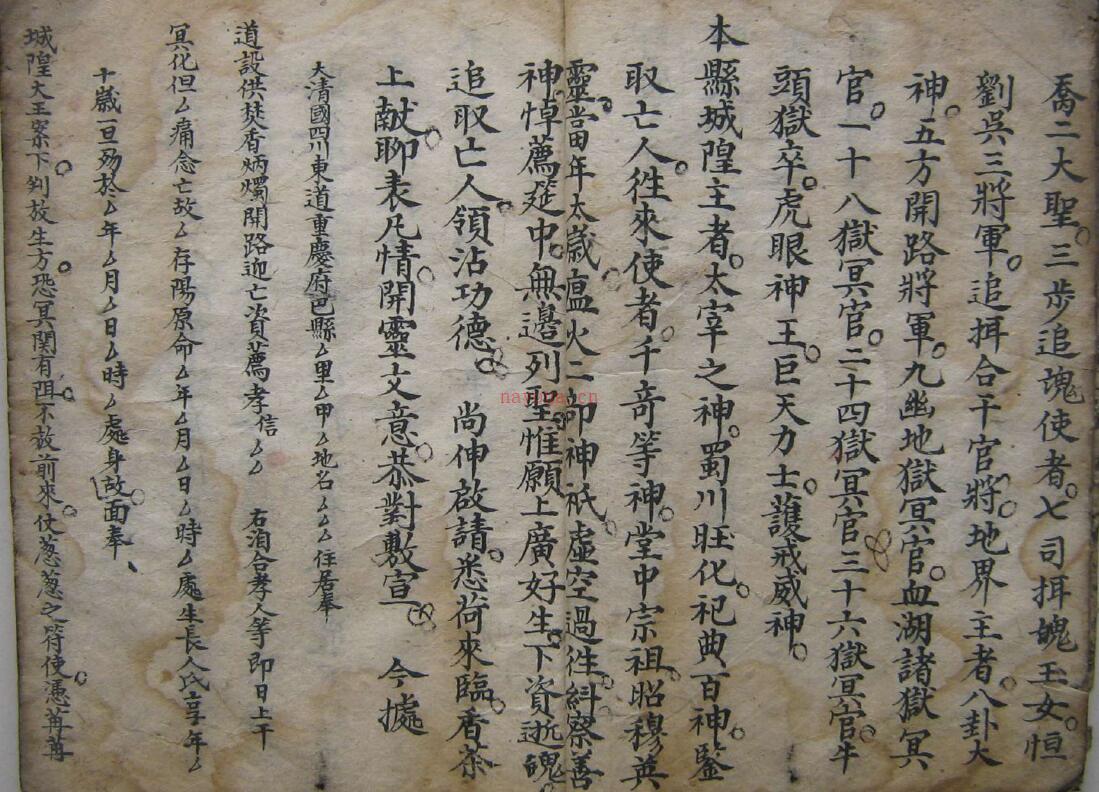 喬二大聖三步追魂使者七司揖魄玉女恒
劉吳三將軍追揖合干官將地界主者八卦大
神五方開路將軍九幽地獄冥官血湖諸獄冥
官一十八獄冥官二十四獄冥官三十六獄冥官牛
頭獄卒虎眼神王巨天力士護戒威神
本縣城隍主者太宰之神蜀川旺化祀典百神鑒
取亡人徃來使者千竒等神堂中宗祖昭穆英
靈當年太歲瘟火二部神祇虛空過徃糾察善
神悼薦筵中無邊列聖惟願上廣好生下資逝魂
追取亡人領沾功德 尚伸啟請悉荷來臨香茶
上献聊表凡情開靈文意恭對敷宣 今據
大清國四川東道重慶府巴縣厶里厶甲厶地名厶厶住居奉
道設供焚香炳燭開路迎亡資薦孝信厶厶 右洎合孝人等即日上干
冥化但厶痛念亡故厶存陽原命厶年厶月厶日厶時厶處生長人氏享年厶
十歲一旦殁於厶年厶月厶日厶時厶處身故面奉
城隍大王案下判放生方恐冥関有阻不放前來仗蔥蔥之符使憑苒苒
navima.cn